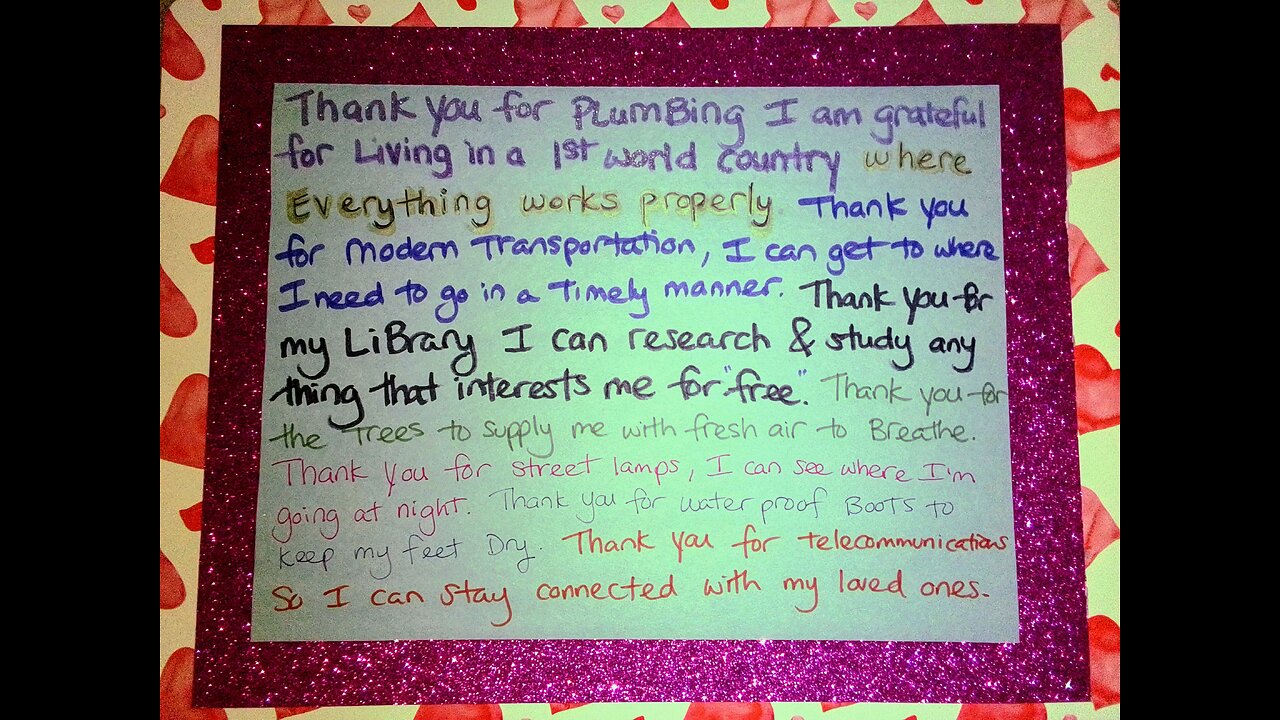 Thank you for PLumBing I am grateful
for Living in a 1st world country where
Everything works properly. Thank you
for modern Transportation, I can get to where
I need to go in a Timely manner. Thank you for
my LiBrary I can research & study any
thing that interests me for "free". Thank you for
the Trees to supply me with fresh air to Breathe.
Thank you for street lamps, I can see where I'm
going at night. Thank you for water proof Boots to
keep my feet Dry. Thank you for telecommunications
So I can stay connected with my loved ones.